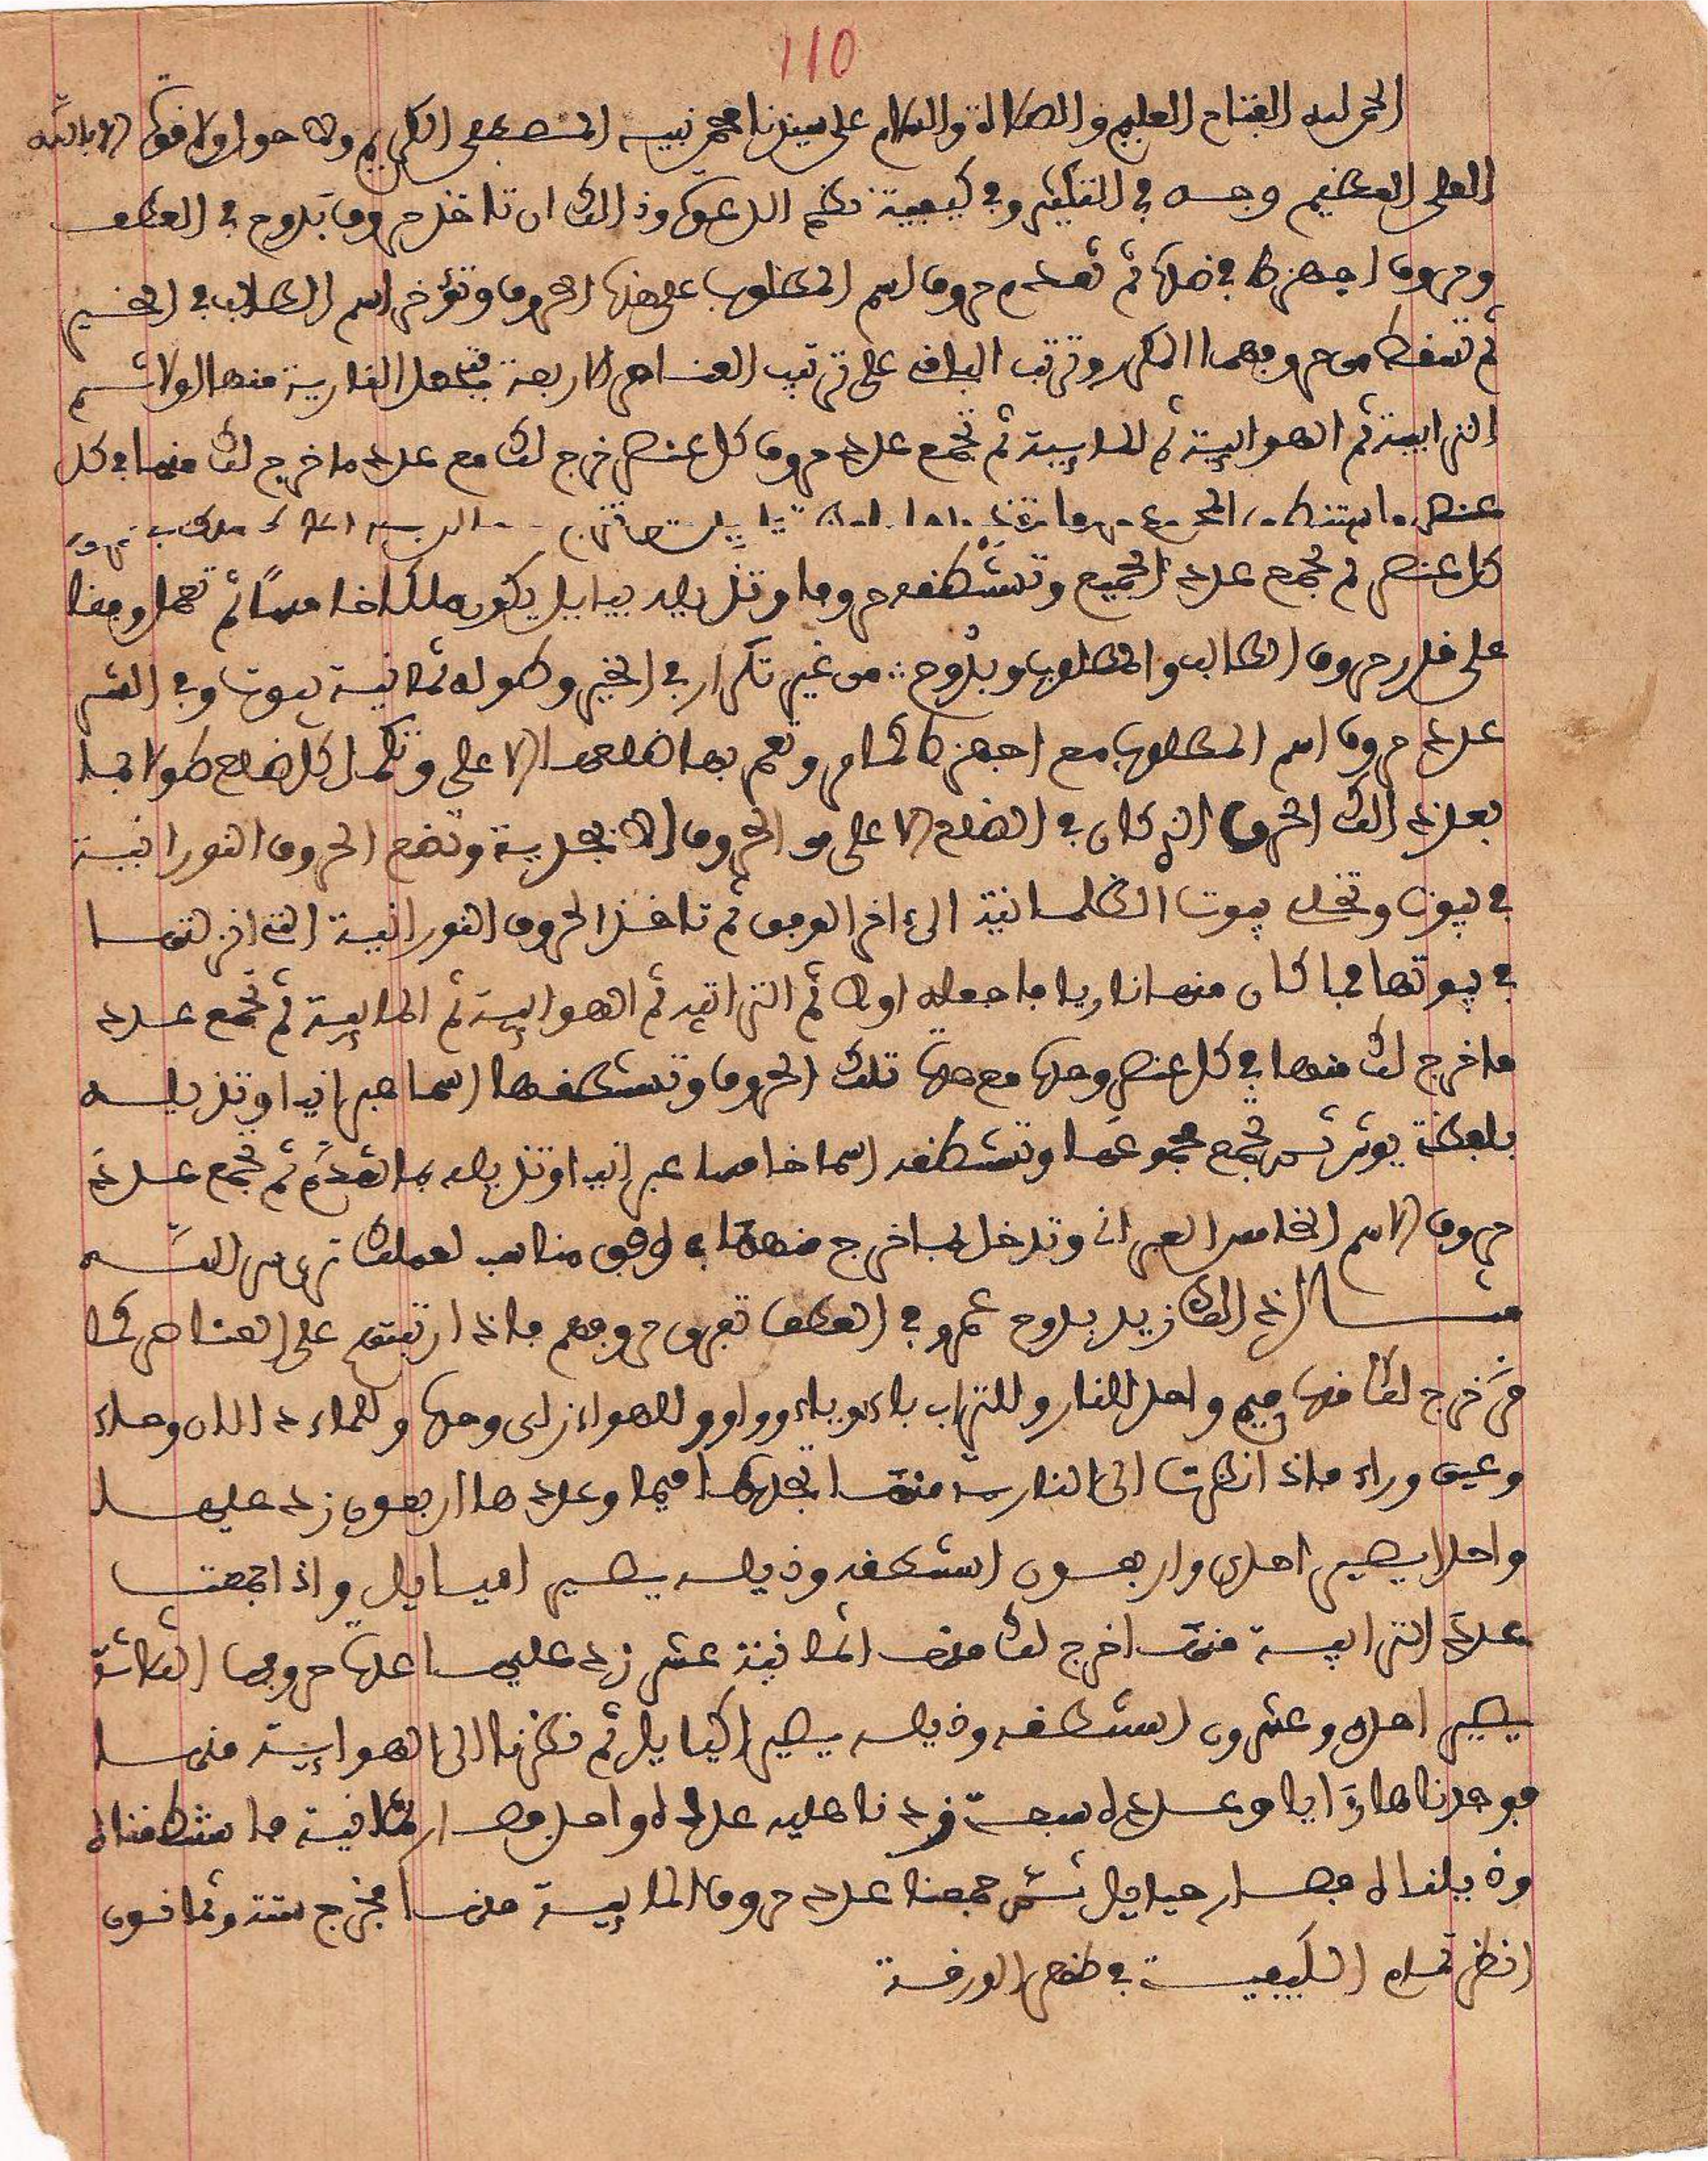 110
الحمد لله الفتاح العليم والصلاة والسلام على سيدنا محمد نبيه المصطفى الكريم ولا حول ولا قوة الا بالله
العلى العظيم وجه في التكسير وفي كيفية نظم الدعوة وذالك ان تاخذ حروف بدوح في العطف
وحروف اجهزط في ضدها ثم تقدم حروف اسم المطلوب على هذه الحروف وتؤخر اسم الطالب في الخير
ثم تسقط من حروفهما المكرر وترتب الباقي على ترتيب العناصر الاربعة فتجعل النارية منها اولا ثم
الترابية ثم الهوايية ثم المايية ثم تجمع عدد حروف كل عنصر خرج لك مع عدد ما خرج لك منها في كل
عنصر
كل عنصر ثم تجمع عدد الجميع وتستنطقه حروفا وتذيله بياييل يكون ملكا خامسا ثم تعمل وفقا
على قدر حروف الطالب والمطلوب وبدوح من غير تكرار في الخير وطوله ثمانية بيوت وفي الشر
عدد حروف اسم المطلوب مع اجهزط وتعم بها ضلعها الاعلى وتكمل كل ضلع طولا بما
بعد ذالك الحرف الذي كان في الضلع الاعلى من الحروف الابجدية وتضع الحروف النورانية
في بيوت وتخل بيوت الظلمانية الى ءاخر الوفق ثم تاخذ الحروف النورانية التي انزلتها
في بيوتها فما كان منها ناريا فاجعله اولا ثم الترابية ثم الهوايية ثم المايية ثم تجمع عدد
ما خرج لك منها في كل عنصر وحدها مع عدة تلك الحروف وتستنطقها اسما عبرانيا وتذيله
بلفظة يوش ثم تجمع مجموعها وتستنطقه اسما خامسا عبرانيا وتذيله بما تقدم ثم تجمع عدد
حروف الاسم الخامس العبراني وتدخل بما خرج منها في وفق مناسب لعملك ترى سر الله
مثال ذالك زيد بدوح عمرو في العطف تفرق حروفهم فاذا رتبتهم على العناصر كما
مر خرج لك فيها ميم واحد للنار وللتراب باء وياء وواو وللهواء زاى وحدها وللماء دالان وحاء
وعين وراء فاذا نظرت الى النارية منها تجدها ميما وعددها اربعون زد عليها
واحدا يصير احدى واربعون استنطقه وذيله يصير اميائيل واذا جمعت
عدد الترابية منها خرج لك منها ثمانية عشر زد عليها عدة حروفها الثلاثة
يصير احد وعشرون استنطقه وذيله يصير اكيائيل ثم نظرنا الى الهوايية منها
فوجدناها زايا وعدده سبعة زدنا عليه عدده واحد فصار ثمانية فاستنطقناه
وذيلناه فصار حيائيل ثم جمعنا عدد حروف المايية منها فخرج ستة وثمانون
انظر تمام الكيفية في ظهر الورقة